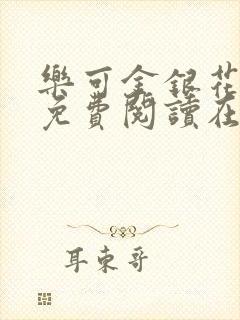 樂可金銀花
免費閱讀在
耳東哥